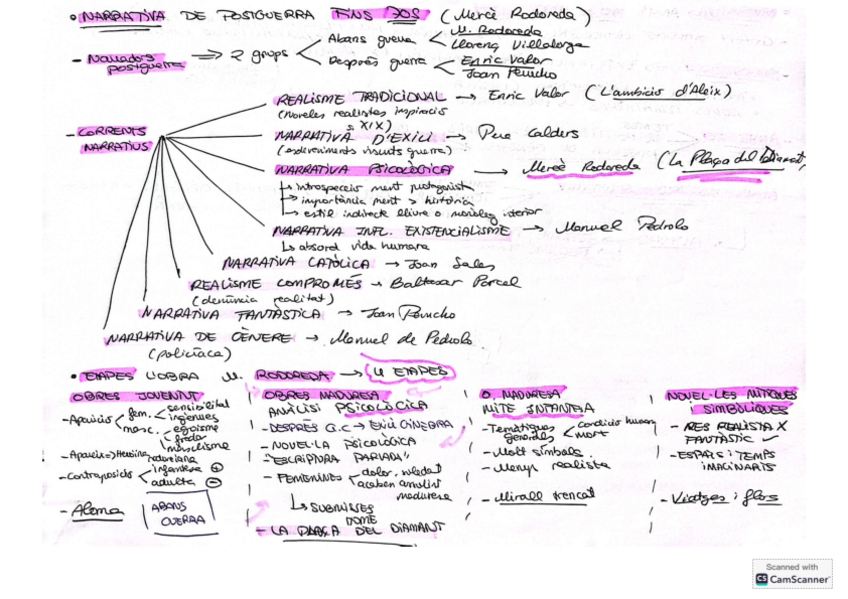 • NARRATIVA DE POSTGUERRA FINS 70S (Mercè Rodoreda)
- Narradors postguerra ⇒ 2 grups
Abans guerra
M. Rodoreda
Llorenç Villalonga
Després guerra
Enric Valor
Joan Perucho
- CORRENTS NARRATIUS
REALISME TRADICIONAL → Enric Valor (L'ambició d'Aleix)
(noveles realistes inspiració s. XIX)
NARRATIVA D'EXILI → Pere Calders
(esdeveniments viscuts guerra)
NARRATIVA PSICOLÒGICA → Mercè Rodoreda (La Plaça del Diamant)
↳ introspecció ment protagonista
↳ importància ment > història
↳ estil indirecte lliure o monòleg interior
NARRATIVA INFL. EXISTENCIALISME → Manuel Pedrolo
↳ absurd vida humana
NARRATIVA CATÒLICA → Joan Sales
REALISME COMPROMÉS → Baltasar Porcel
(denúncia realitat)
NARRATIVA FANTÀSTICA → Joan Perucho
NARRATIVA DE GÈNERE → Manuel de Pedrolo
(policíaca)
• ETAPES L'OBRA M. RODOREDA → 4 ETAPES
OBRES JOVENTUT
- Aparició
fem.
sensibilitat
ingènues
masc.
egoisme
fredor
masclisme
- Apareix ⇒ Heroïna rodoriana
- Contraposició
infantesa +
adulta -
- Aloma
ABANS GUERRA
OBRES MADURESA
ANÀLISI PSICOLÒGICA
- DESPRÉS G.C → EXILI GINEBRA
- NOVEL·LA PSICOLÒGICA
- "ESCRIPTURA PARLADA"
- FEMENINES
dolor, soledat
acaben assolint maduresa
↳ SUBMISSES
- LA PLAÇA DEL DIAMANT
O. MADURESA
MITE INFANTESA
- Temàtiques generals
condició humana
mort
- Molt símbols
- Menys realista
- Mirall trencat
NOVEL·LES MÍTIQUES I SIMBÒLIQUES
- RES REALISTA X
FANTÀSTIC ✓
- ESPAIS i TEMPS IMAGINARIS
- Viatges i flors
Scanned with
CS CamScanner